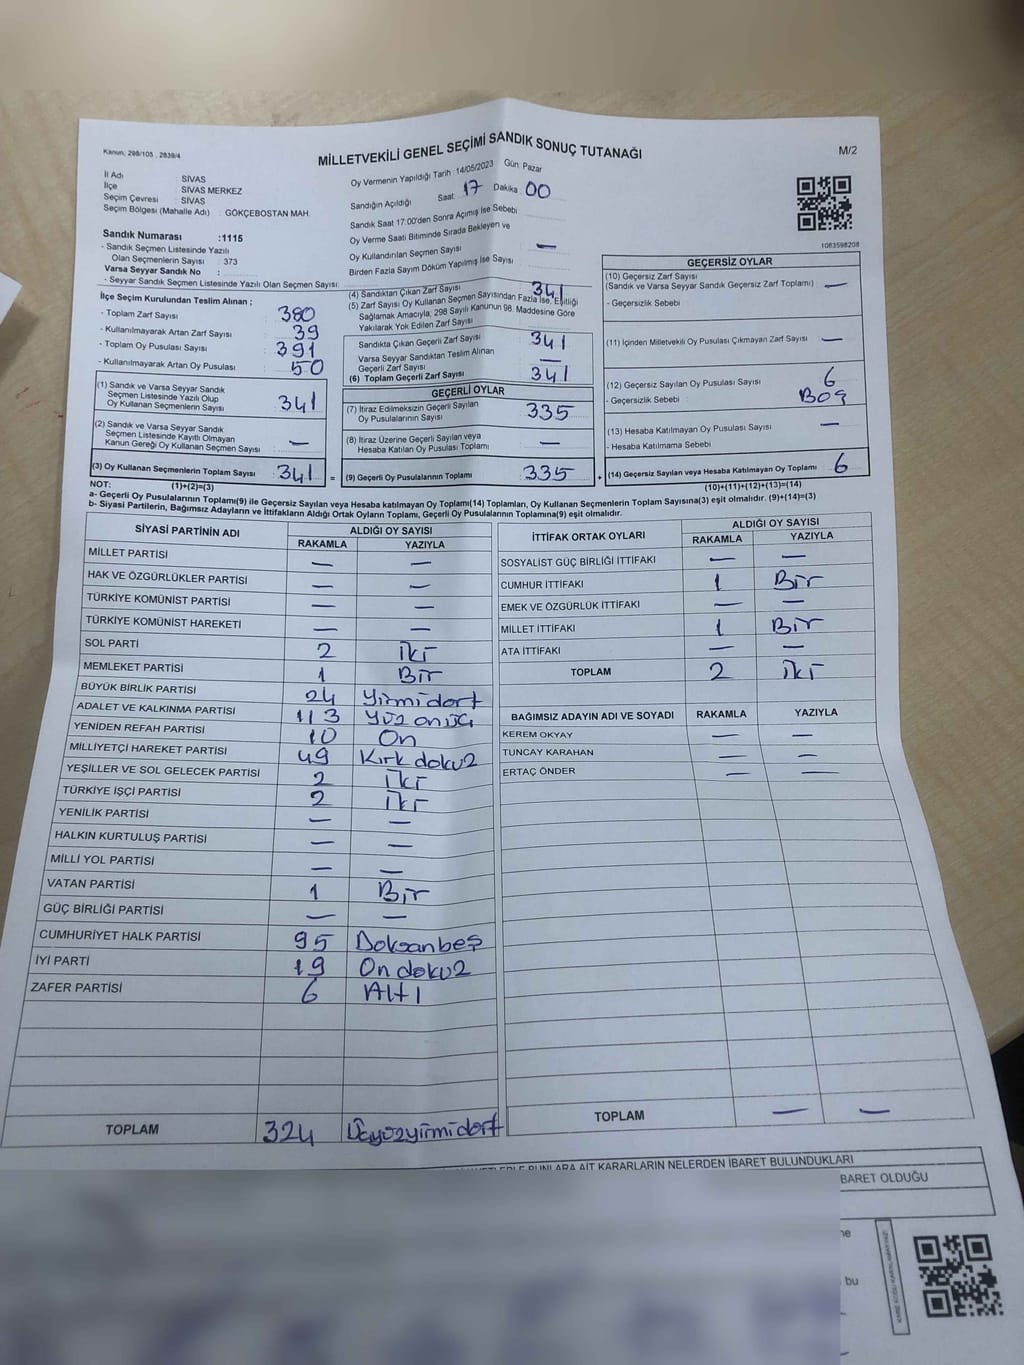 Kanun, 298/105 , 2839/4
MİLLETVEKİLİ GENEL SEÇİMİ SANDIK SONUÇ TUTANAĞI
M/2
İl Adı : SİVAS
İlçe : SİVAS MERKEZ
Seçim Çevresi : SİVAS
Seçim Bölgesi (Mahalle Adı) : GÖKÇEBOSTAN MAH.
Oy Vermenin Yapıldığı Tarih : 14/05/2023 Gün: Pazar
Sandığın Açıldığı Saat 17 Dakika 00
Sandık Saat 17:00'den Sonra Açımış İse Sebebi
Oy Verme Saati Bitiminde Sırada Bekleyen ve
Oy Kullandırılan Seçmen Sayısı —
Birden Fazla Sayım Döküm Yapılmış İse Sayısı
1083598208
Sandık Numarası :1115
- Sandık Seçmen Listesinde Yazılı
Olan Seçmenlerin Sayısı : 373
Varsa Seyyar Sandık No :
- Seyyar Sandık Seçmen Listesinde Yazılı Olan Seçmen Sayısı:
İlçe Seçim Kurulundan Teslim Alınan ;
- Toplam Zarf Sayısı : 380
- Kullanılmayarak Artan Zarf Sayısı : 39
- Toplam Oy Pusulası Sayısı : 391
- Kullanılmayarak Artan Oy Pusulası : 50
(1) Sandık ve Varsa Seyyar Sandık
Seçmen Listesinde Yazılı Olup
Oy Kullanan Seçmenlerin Sayısı : 341
(2) Sandık ve Varsa Seyyar Sandık
Seçmen Listesinde Kayıtlı Olmayan
Kanun Gereği Oy Kullanan Seçmen Sayısı : —
(3) Oy Kullanan Seçmenlerin Toplam Sayısı : 341 =
(4) Sandıktan Çıkan Zarf Sayısı : 341
(5) Zarf Sayısı Oy Kullanan Seçmen Sayısından Fazla İse, Eşitliği
Sağlamak Amacıyla; 298 Sayılı Kanunun 98. Maddesine Göre
Yakılarak Yok Edilen Zarf Sayısı
Sandıkta Çıkan Geçerli Zarf Sayısı : 341
Varsa Seyyar Sandıktan Teslim Alınan
Geçerli Zarf Sayısı : —
(6) Toplam Geçerli Zarf Sayısı : 341
GEÇERLİ OYLAR
(7) İtiraz Edilmeksizin Geçerli Sayılan
Oy Pusulalarının Sayısı : 335
(8) İtiraz Üzerine Geçerli Sayılan veya
Hesaba Katılan Oy Pusulası Toplamı : —
(9) Geçerli Oy Pusulalarının Toplamı : 335 +
GEÇERSİZ OYLAR
(10) Geçersiz Zarf Sayısı
(Sandık ve Varsa Seyyar Sandık Geçersiz Zarf Toplamı) : —
- Geçersizlik Sebebi
(11) İçinden Milletvekili Oy Pusulası Çıkmayan Zarf Sayısı : —
(12) Geçersiz Sayılan Oy Pusulası Sayısı : 6
- Geçersizlik Sebebi : Boş
(13) Hesaba Katılmayan Oy Pusulası Sayısı : —
- Hesaba Katılmama Sebebi
(14) Geçersiz Sayılan veya Hesaba Katılmayan Oy Toplamı : 6
NOT: (1)+(2)=(3)
(10)+(11)+(12)+(13)=(14)
a- Geçerli Oy Pusulalarının Toplamı(9) ile Geçersiz Sayılan veya Hesaba katılmayan Oy Toplamı(14) Toplamları, Oy Kullanan Seçmenlerin Toplam Sayısına(3) eşit olmalıdır. (9)+(14)=(3)
b- Siyasi Partilerin, Bağımsız Adayların ve İttifakların Aldığı Ortak Oyların Toplamı, Geçerli Oy Pusulalarının Toplamına(9) eşit olmalıdır.
SİYASİ PARTİNİN ADI ALDIĞI OY SAYISI
RAKAMLA YAZIYLA
MİLLET PARTİSİ — —
HAK VE ÖZGÜRLÜKLER PARTİSİ — —
TÜRKİYE KOMÜNİST PARTİSİ — —
TÜRKİYE KOMÜNİST HAREKETİ — —
SOL PARTİ 2 İki
MEMLEKET PARTİSİ 1 Bir
BÜYÜK BİRLİK PARTİSİ 24 Yirmidört
ADALET VE KALKINMA PARTİSİ 113 Yüz onüç
YENİDEN REFAH PARTİSİ 10 On
MİLLİYETÇİ HAREKET PARTİSİ 49 Kırk dokuz
YEŞİLLER VE SOL GELECEK PARTİSİ 2 İki
TÜRKİYE İŞÇİ PARTİSİ 2 İki
YENİLİK PARTİSİ — —
HALKIN KURTULUŞ PARTİSİ — —
MİLLİ YOL PARTİSİ — —
VATAN PARTİSİ 1 Bir
GÜÇ BİRLİĞİ PARTİSİ — —
CUMHURİYET HALK PARTİSİ 95 Doksanbeş
İYİ PARTİ 19 On dokuz
ZAFER PARTİSİ 6 Altı
TOPLAM 324 Üçyüzyirmidört
İTTİFAK ORTAK OYLARI ALDIĞI OY SAYISI
RAKAMLA YAZIYLA
SOSYALİST GÜÇ BİRLİĞİ İTTİFAKI — —
CUMHUR İTTİFAKI 1 Bir
EMEK VE ÖZGÜRLÜK İTTİFAKI — —
MİLLET İTTİFAKI 1 Bir
ATA İTTİFAKI — —
TOPLAM 2 İki
BAĞIMSIZ ADAYIN ADI VE SOYADI RAKAMLA YAZIYLA
KEREM OKYAY — —
TUNCAY KARAHAN — —
ERTAÇ ÖNDER — —
TOPLAM — —
BUNLARA AİT KARARLARIN NELERDEN İBARET BULUNDUKLARI
BARET OLDUĞU
bu